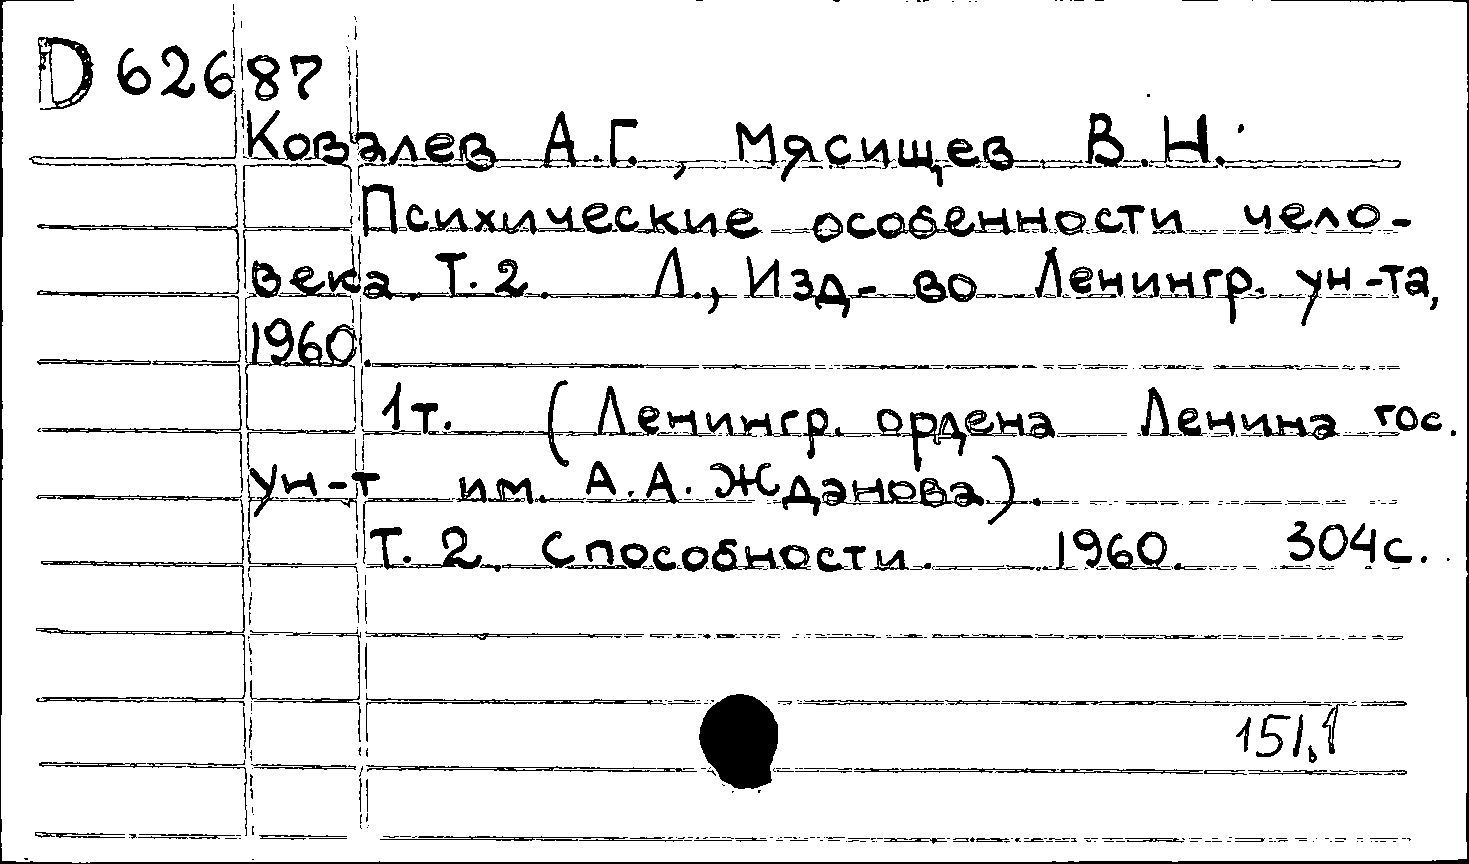 D 62687
Ковалев А.Г., Мясищев В.Н.
Психические особенности чело-
века. Т.2. Л., Изд-во Ленингр. ун-та,
1960.
1т. (Ленингр. ордена Ленина гос.
ун-т им. А.А.Жданова).
Т. 2. Способности. 1960. 304с.
151,1